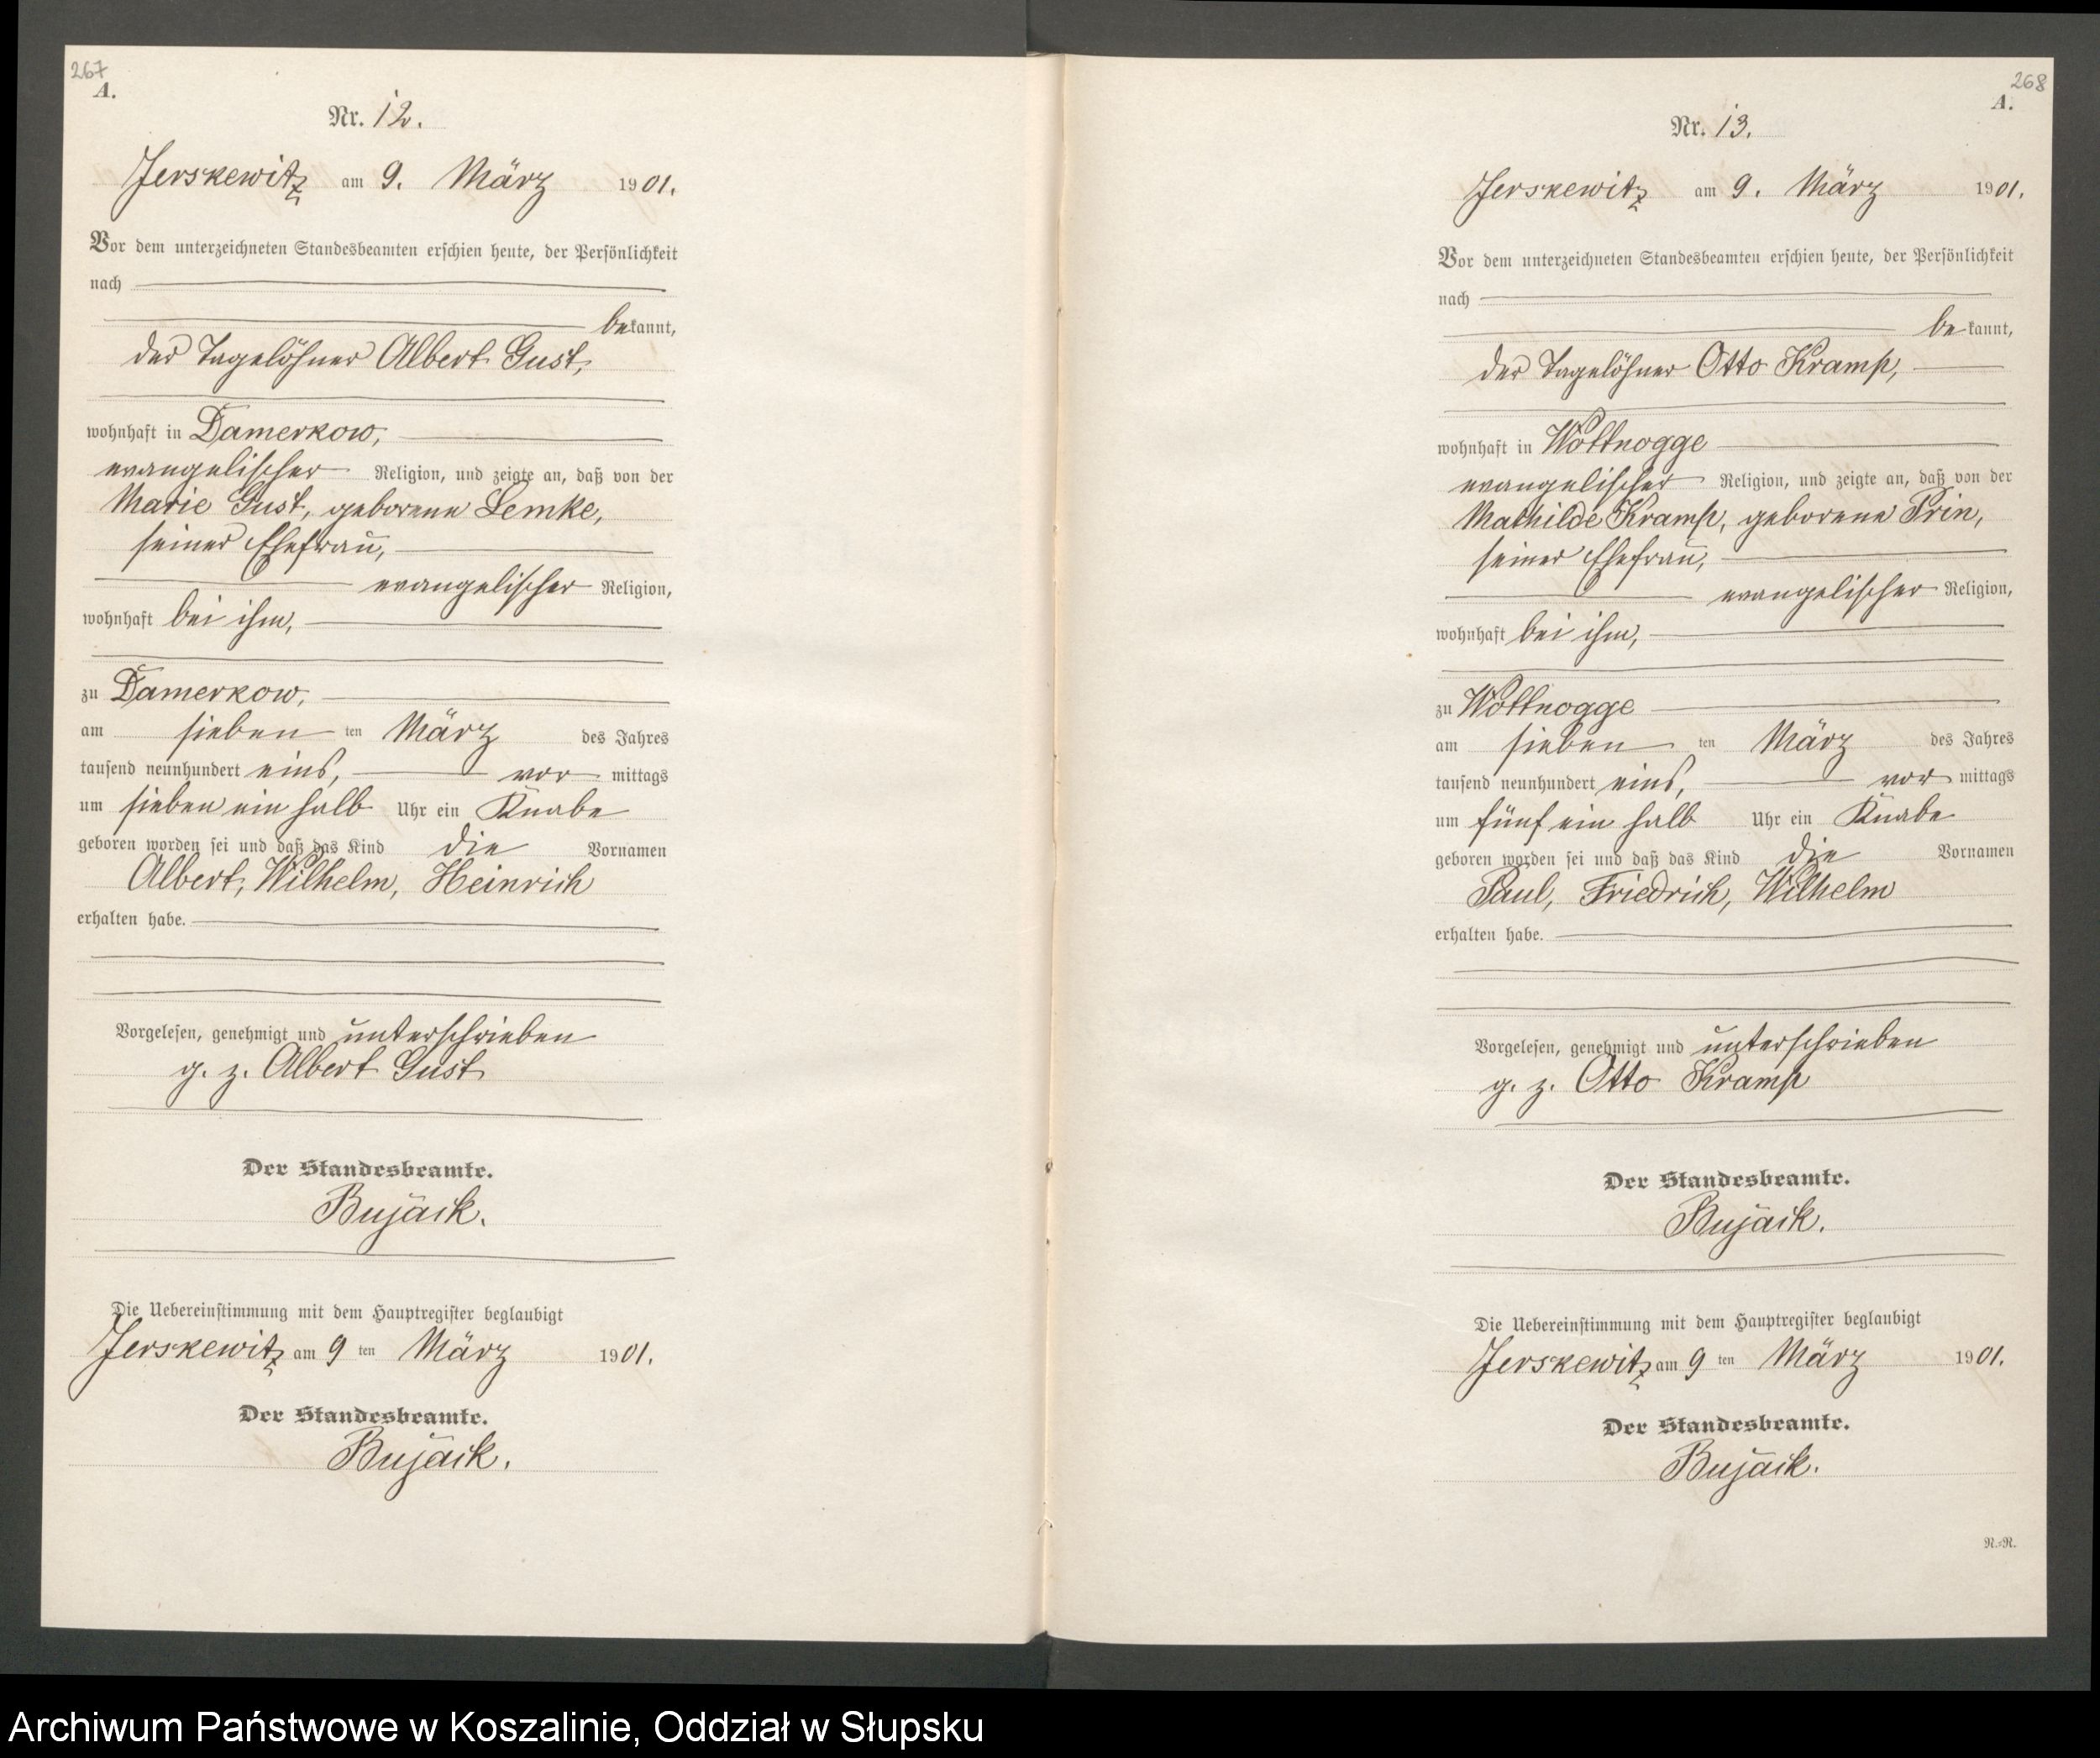 267
A.
Nr. 12.
Jerskewitz am 9. März 1901.
Vor dem unterzeichneten Standesbeamten erschien heute, der Persönlichkeit
nach
bekannt,
der Tagelöhner Albert Gust,
wohnhaft in Damerkow,
evangelischer Religion, und zeigte an, daß von der
Marie Gust, geborene Lemke,
seiner Ehefrau,
evangelischer Religion,
wohnhaft bei ihm,
zu Damerkow,
am sieben ten März des Jahres
tausend neunhundert eins, vor mittags
um sieben ein halb Uhr ein Knabe
geboren worden sei und daß das Kind die Vornamen
Albert, Wilhelm, Heinrich
erhalten habe.
Vorgelesen, genehmigt und unterschrieben
g. z. Albert Gust
Der Standesbeamte.
Bujack.
Die Uebereinstimmung mit dem Hauptregister beglaubigt
Jerskewitz am 9 ten März 1901.
Der Standesbeamte.
Bujack.
268
A.
Nr. 13.
Jerskewitz am 9. März 1901.
Vor dem unterzeichneten Standesbeamten erschien heute, der Persönlichkeit
nach
bekannt,
der Tagelöhner Otto Kramp,
wohnhaft in Wottnogge
evangelischer Religion, und zeigte an, daß von der
Mathilde Kramp, geborene Prin,
seiner Ehefrau,
evangelischer Religion,
wohnhaft bei ihm,
zu Wottnogge
am sieben ten März des Jahres
tausend neunhundert eins, vor mittags
um fünf ein halb Uhr ein Knabe
geboren worden sei und daß das Kind die Vornamen
Paul, Friedrich, Wilhelm
erhalten habe.
Vorgelesen, genehmigt und unterschrieben
g. z. Otto Kramp
Der Standesbeamte.
Bujack.
Die Uebereinstimmung mit dem Hauptregister beglaubigt
Jerskewitz am 9 ten März 1901.
Der Standesbeamte.
Bujack.
R.=R.
Archiwum Państwowe w Koszalinie, Oddział w Słupsku